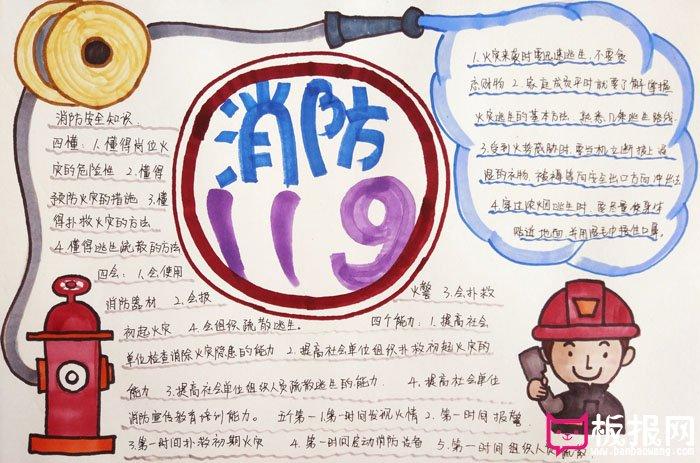 消防
119
消防安全知识
四懂：1.懂得岗位火
灾的危险性 2.懂得
预防火灾的措施 3.懂
得扑救火灾的方法
4.懂得逃生疏散的方法
四会：1.会使用
消防器材 2.会报
火警 3.会扑救
初起火灾 4.会组织疏散逃生。 四个能力：1.提高社会
单位检查消除火灾隐患的能力 2.提高社会单位组织扑救初起火灾的
能力 3.提高社会单位组织人员疏散逃生的能力. 4.提高社会单位
消防宣传教育培训能力。 五个第一 1.第一时间发现火情 2.第一时间报警
3.第一时间扑救初期火灾 4.第一时间启动消防设备 5.第一时间组织人员
1.火灾来袭时要迅速逃生,不要贪
恋财物 2.家庭成员平时就要了解掌握
火灾逃生的基本方法,熟悉几条逃生路线
3.受到火势威胁时,要当机立断披上浸
湿的衣物、被褥等向安全出口方向冲出去
4.穿过浓烟逃生时,要尽量使身体
贴近地面,并用湿毛巾捂住口鼻.
板报网
www.banbaowang.com